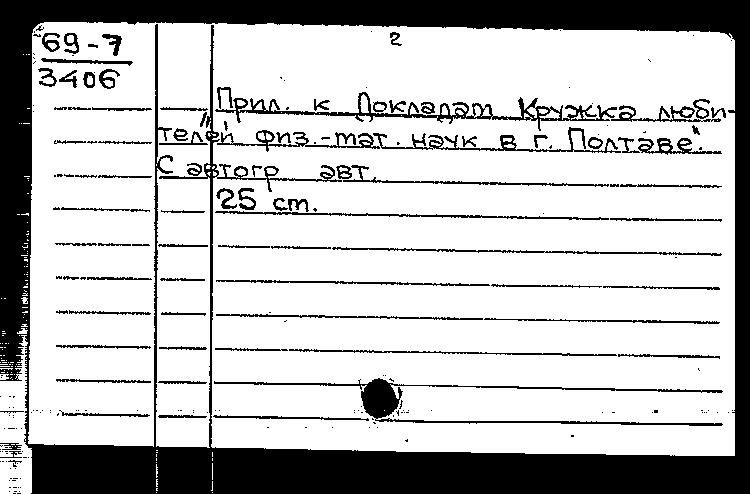 69-7
3406
2
Прил. к Докладам Кружка люби-
телей физ.-мат. наук в г. Полтаве".
С автогр авт.
25 cm.